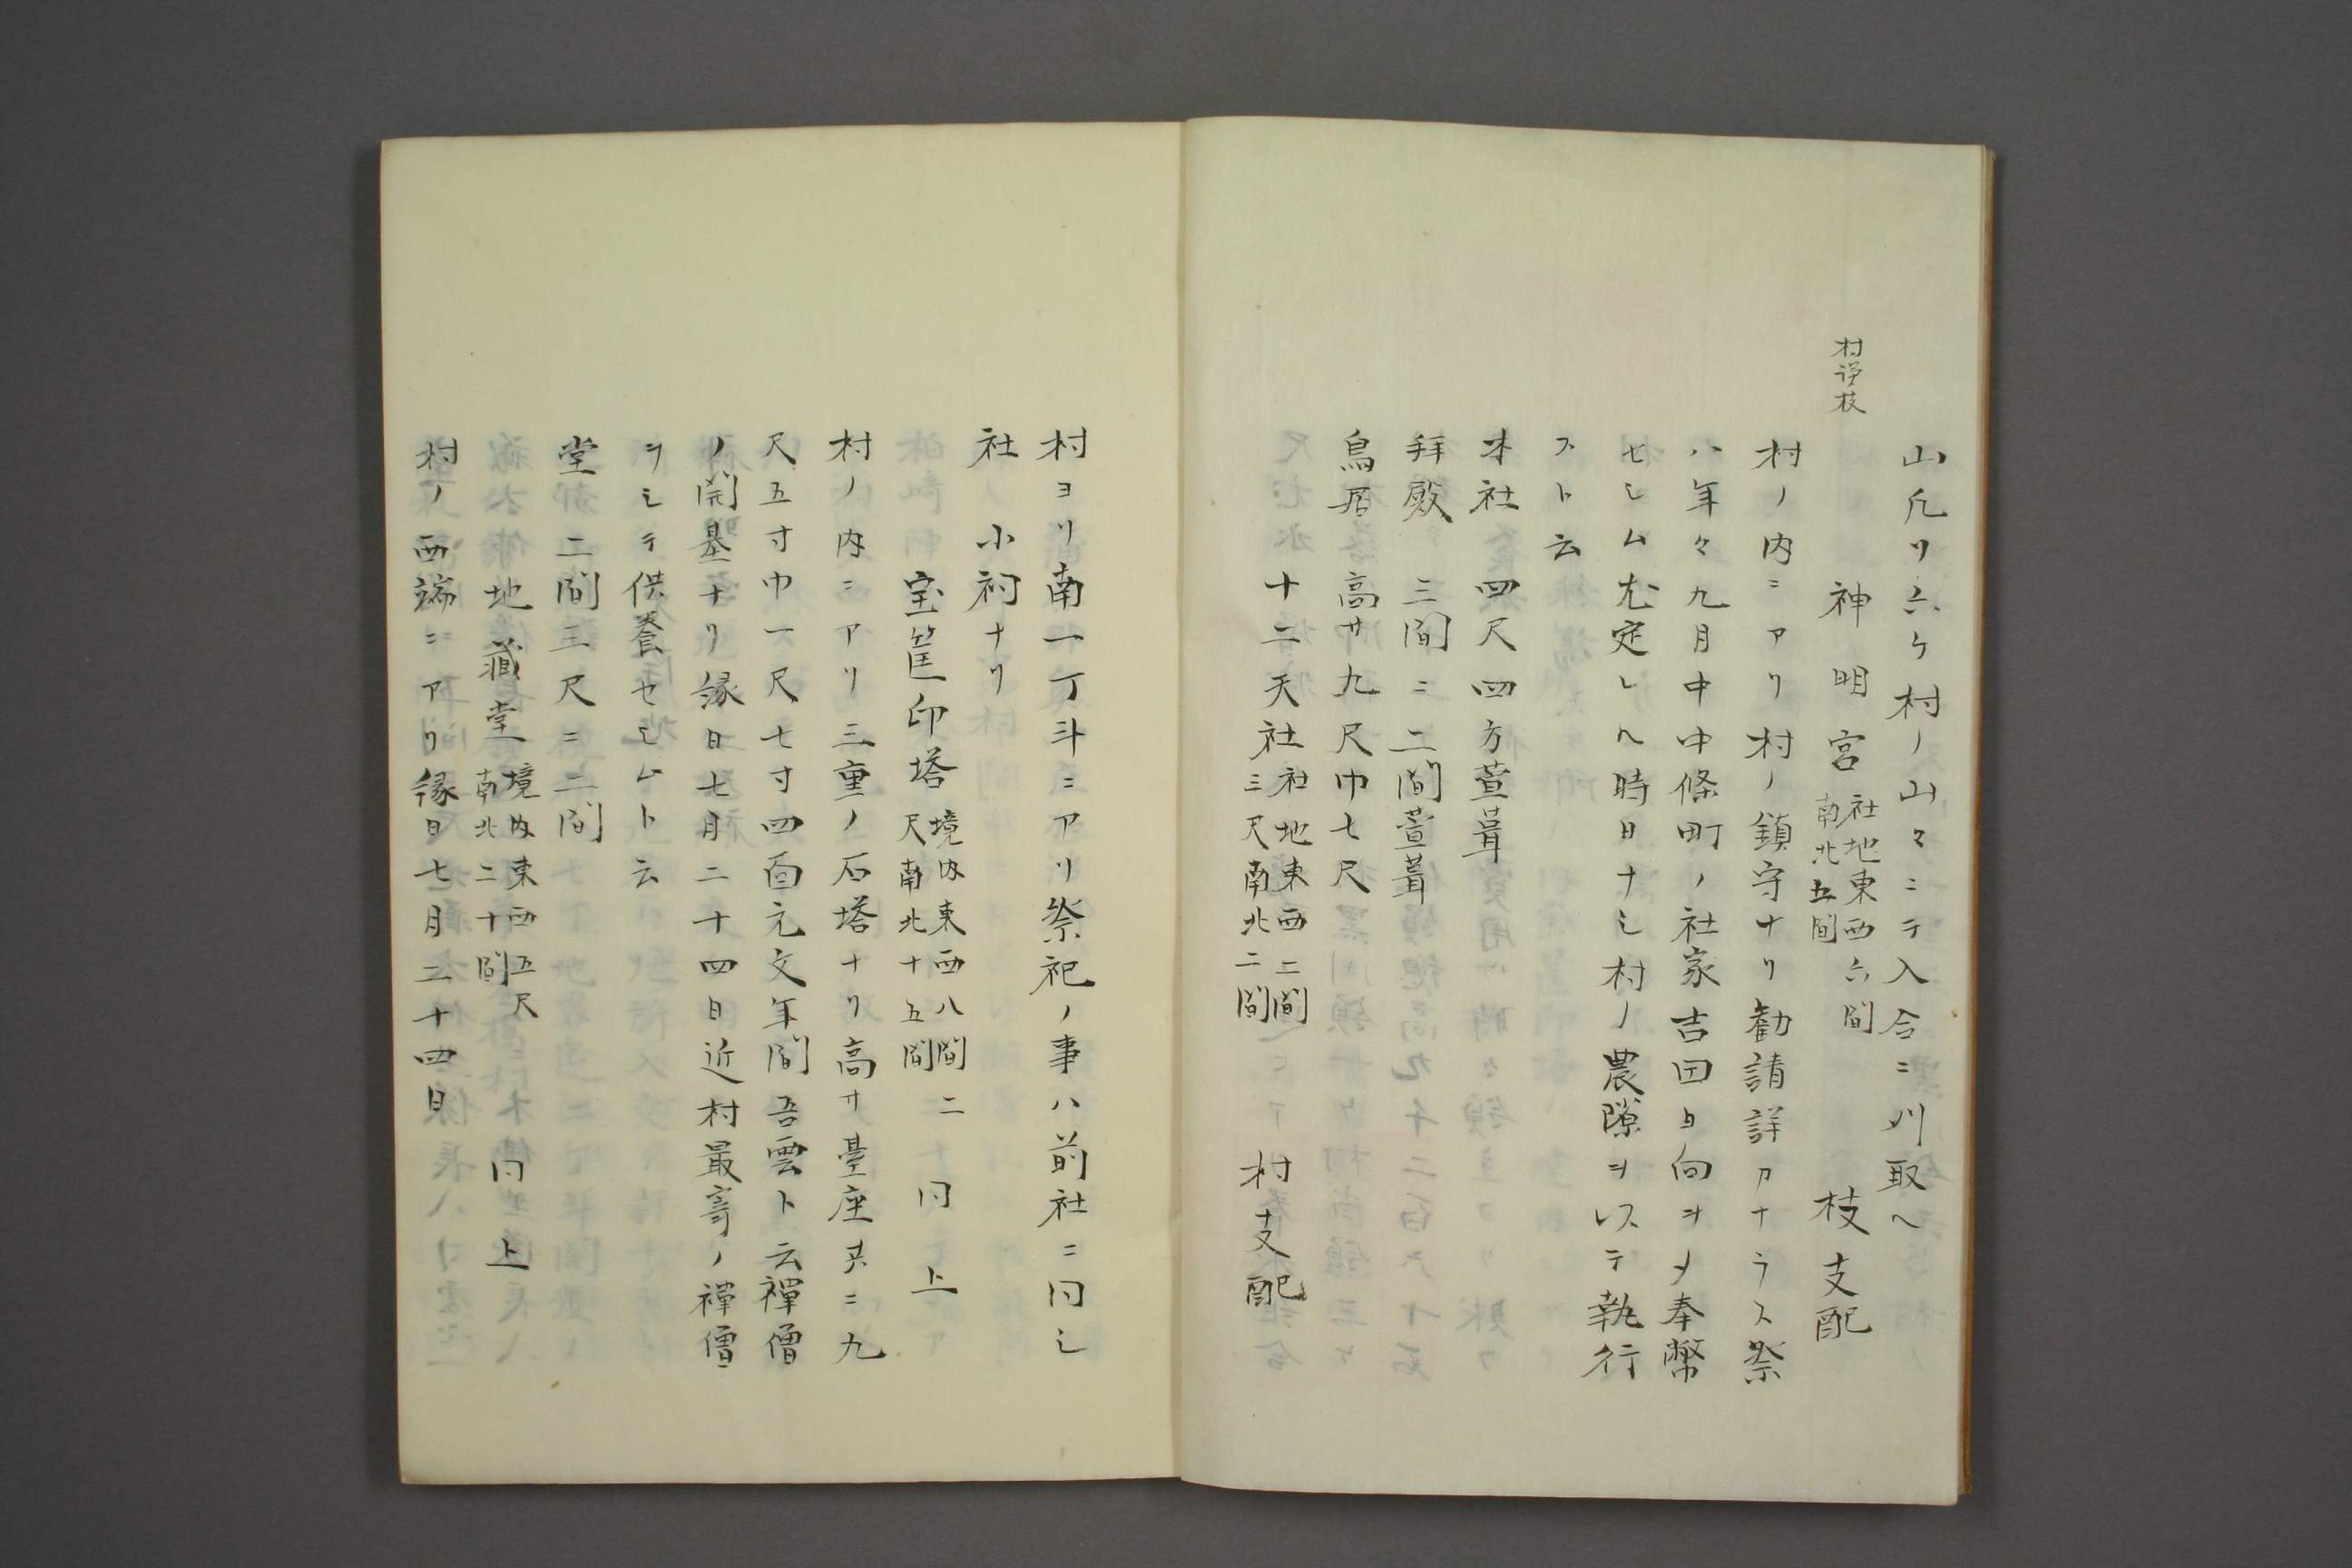 山凡リ六ケ村ノ山々ニテ入合ニ刈取ヘ
村浄枝
神明宮 社地東西六間 南北五間 枝支配
村ノ内ニアリ村ノ鎮守ナリ勧請詳カナラス祭
ハ年々九月中中條町ノ社家吉田日向ヲメ奉幣
セシム尤定レヘ時日ナシ村ノ農隙ヲ以テ執行
スト云
本社 四尺四方萱葺
拜殿 三間ニ二間萱葺
鳥居 高サ九尺巾七尺
十二天社 社地東西二間 三尺南北二間 村支配
村ヨリ南一丁斗ニアリ祭祀ノ事ハ前社ニ同シ
社 小祠ナリ
宝筐印塔 境内東西八間二 尺南北十五間 同上
村ノ内ニアリ三重ノ石塔ナリ高サ臺座共ニ九
尺五寸巾一尺七寸四面元文年間吾雲ト云禪僧
ノ開基ナリ縁日七月二十四日近村最寄ノ禪僧
ヲシテ供養セシムト云
堂 二間三尺ニ二間
地藏堂 境内東西五尺 南北二十間 同上
村ノ西端ニアリ縁日七月二十四日